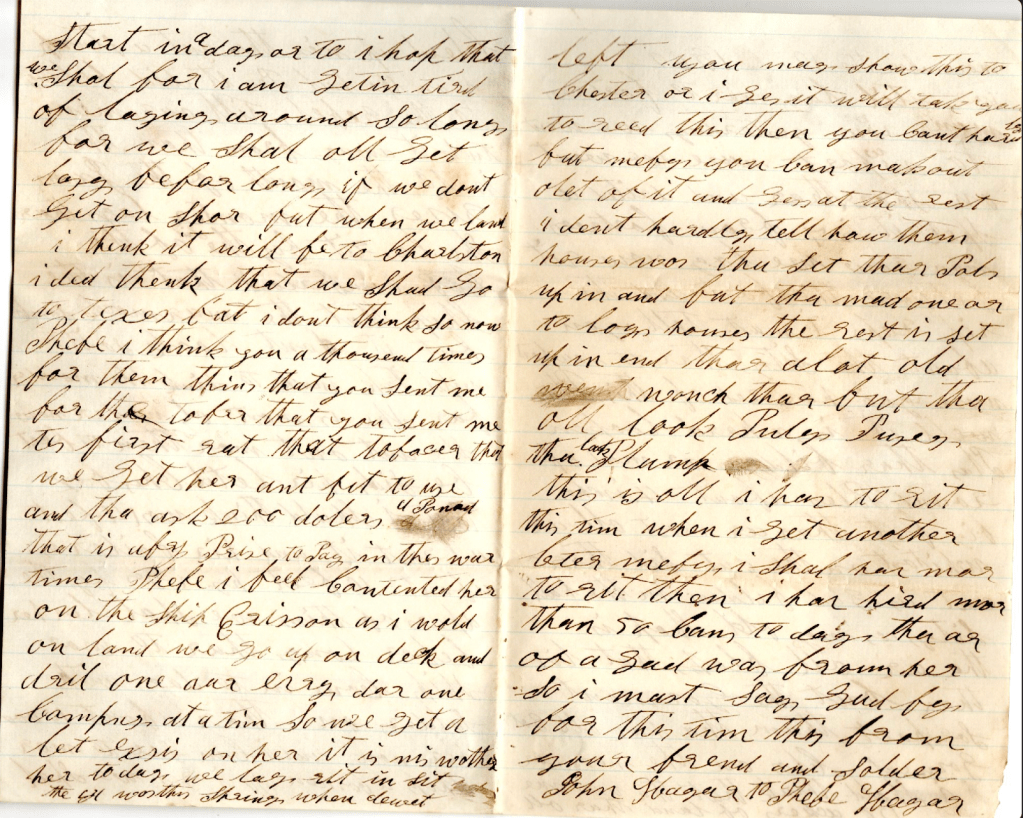 Start in a day or to i hop that
we Shal for i am getin tird
of laying around So long
for we Shal all get
lasy befar long if we dont
get on Shor but when we land
i think it will be to Charlston
i ded thenk that we Shud go
to texes bat i dont think so now
Phebe i think you a thousend times
for them thins that you Sent me
for the tober that you sent me
tes first rat that tobacer that
we get her ant fit to use
and tha ask 200 dolers a Ponad
that is a Prise to Pay in thes war
times Phebe i feel Contented her
on the Ship Erisson as i wold
on land we go up on deck and
dril one aur erry dar one
Compny at a tim So we get a
let on her it is nis wother
her to day we lay rit in sit
the worthis Springs when dewet
left you may show this to
Chester or i ges it will tak you
to reed this then you Cant hard
but mebys you Can mak out
olet of it and gess at the rest
i dont hardly tell how them
houses wos tha set thar Pols
up in and but tha mad one ar
to logs houses the rest is set
up in end thar alot old
wonch thar but tha
oll look Puley Pusey
tha lak Plump
this is oll i hav to rit
this tim when i get another
leter mebys i Shal hav mor
to rit then i hav hird mor
than 50 Cans to day tha ar
of a gud way from her
So i must Say gud by
for this tim this from
your frend and Solder
John to Phebe